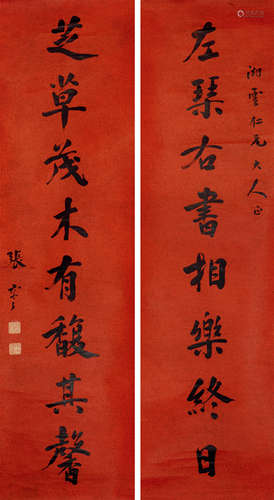 左琴右書相樂終日
芝草茂木有馥其馨
仁兄大人正
張